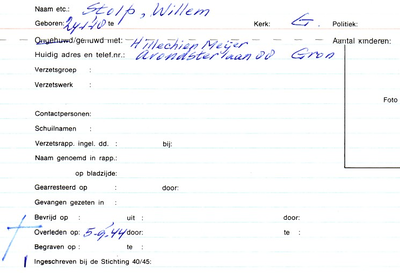 Naam etc.: Stolp, Willem
Geboren: te Kerk: G. Politiek:
Ongehuwd/gehuwd met: Hillechien Meijer Aantal kinderen:
Huidig adres en telef.nr.: Avondsterlaan Gron
Verzetsgroep :
Verzetswerk : Foto
Contactpersonen:
Schuilnamen :
Verzetsrapp. ingel. dd. : bij:
Naam genoemd in rapp.:
op bladzijde:
Gearresteerd op : door:
Gevangen gezeten in :
Bevrijd op : uit : door:
Overleden op: 5-9-44 door: te :
Begraven op : te :
Ingeschreven bij de Stichting 40/45: